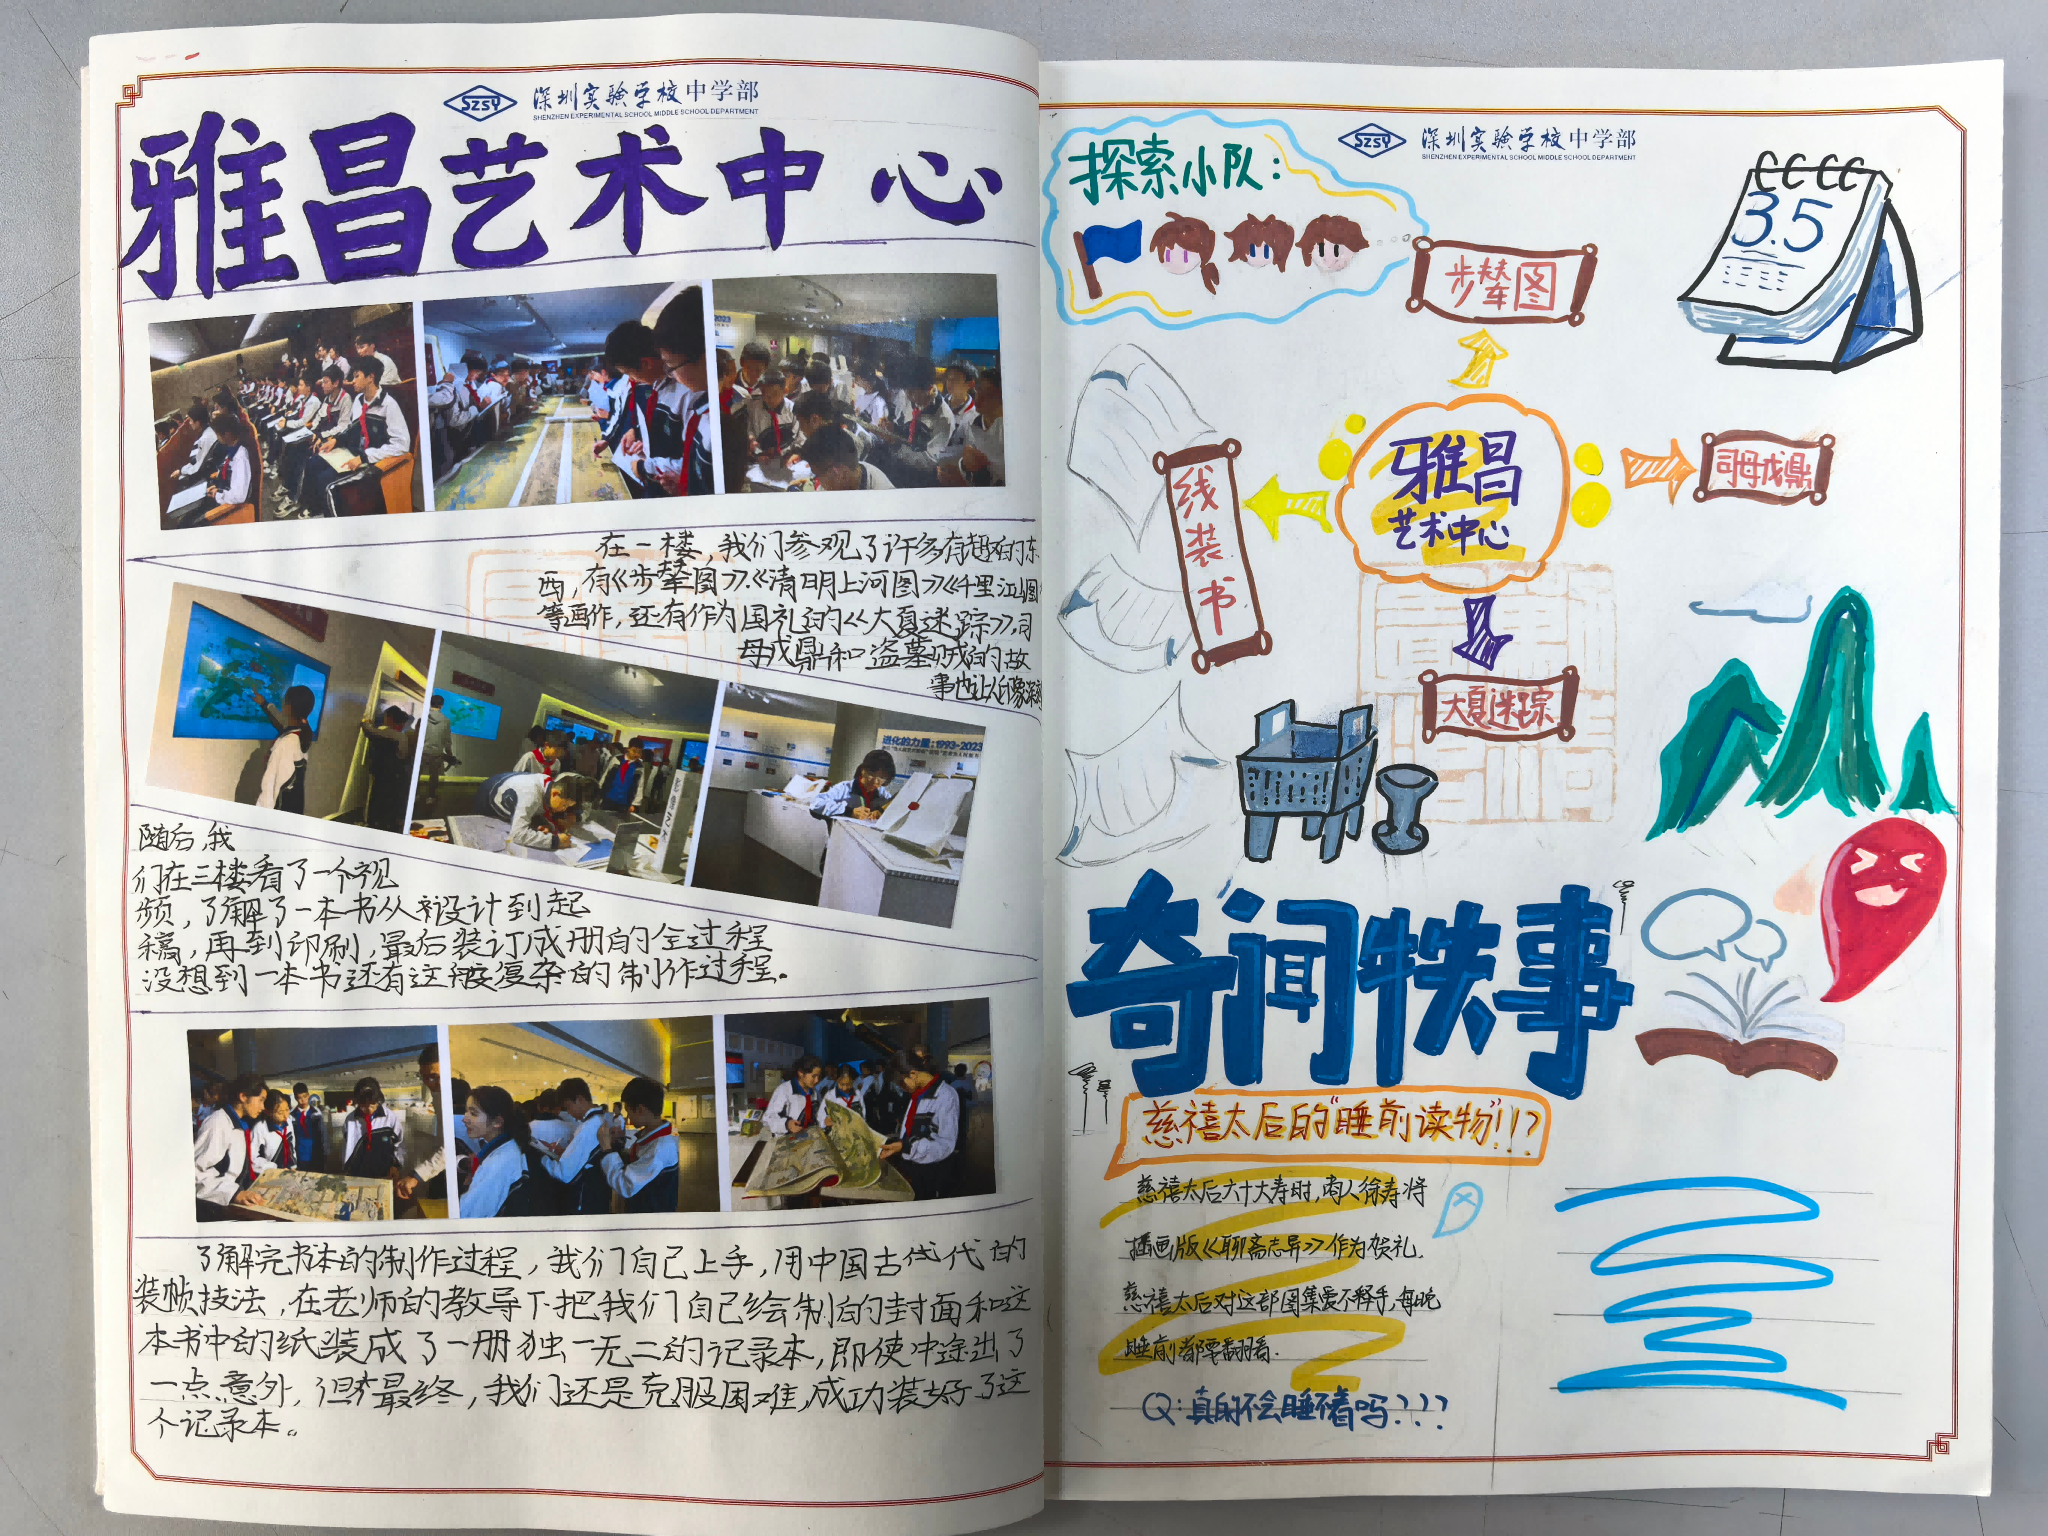 SZSY 深圳实验学校中学部
SHENZHEN EXPERIMENTAL SCHOOL MIDDLE SCHOOL DEPARTMENT
雅昌艺术中心
在一楼,我们参观了许多有趣的东
西,有《步辇图》《清明上河图》《千里江山图》
等画作,还有作为国礼的《大夏迷踪》,司
母戊鼎和盗墓贼的故
事也让人印象深刻
进化的力量:1993-2023
随后,我
们在三楼看了一个视
频,了解了一本书从设计到起
稿,再到印刷,最后装订成册的全过程
没想到一本书还有这般复杂的制作过程。
了解完书本的制作过程,我们自己上手,用中国古代的
装帧技法,在老师的教导下把我们自己绘制的封面和这
本书中的纸装成了一册独一无二的记录本,即使中途出了
一点意外,但最终,我们还是克服困难,成功装好了这
个记录本。
SZSY 深圳实验学校中学部
SHENZHEN EXPERIMENTAL SCHOOL MIDDLE SCHOOL DEPARTMENT
探索小队:
3.5
步辇图
雅昌
艺术中心
线装书
司母戊鼎
大夏迷踪
奇闻轶事
慈禧太后的"睡前读物"!!?
慈禧太后六十大寿时,商人徐寿将
插画版《聊斋志异》作为贺礼.
慈禧太后对这部图集爱不释手,每晚
睡前都要翻看.
Q:真的不会睡不着吗???